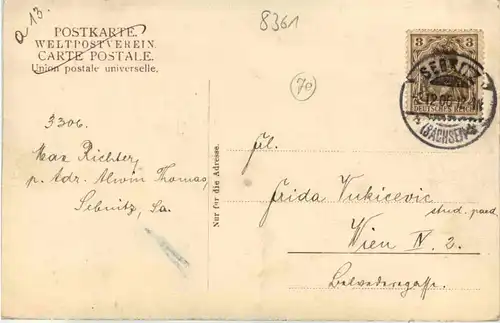 a 13.
8361
POSTKARTE.
WELTPOSTVEREIN.
CARTE POSTALE.
Union postale universelle.
70
3
DEUTSCHES REICH
SEBNITZ
12.06
(SACHSEN)
3306.
Max Richter,
p. Adr. Alwin Thomas,
Sebnitz, Sa.
Nur für die Adresse.
Frl.
Frida Vukicevic
stud. paed.
Wien IV. 2.
Belvederegasse.